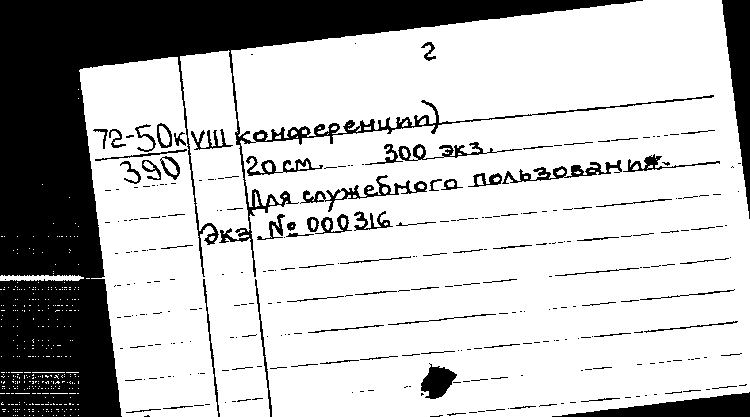 2
72-50к VIII конференции).
390 20 см. 300 экз.
Для служебного пользования.
Экз. № 000316.